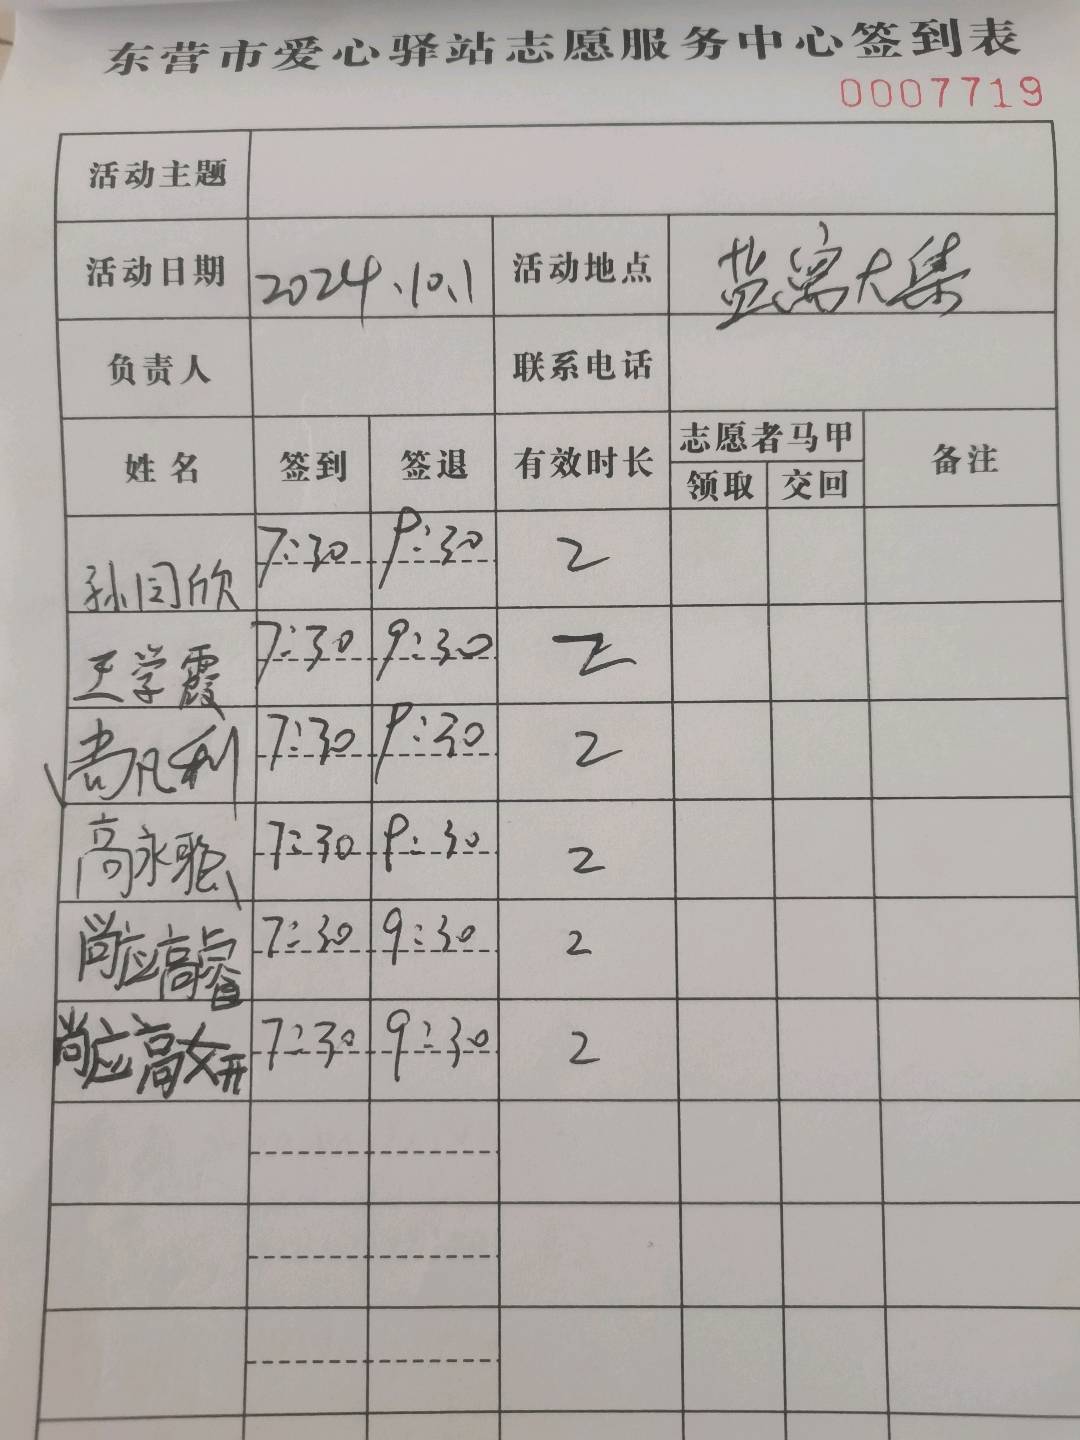 东营市爱心驿站志愿服务中心签到表
0007719
活动主题
活动日期 2024.10.1 活动地点 盐窝大集
负责人 联系电话
姓名 签到 签退 有效时长 志愿者马甲 备注
领取 交回
孙闫欣 7:30 9:30 2
王学霞 7:30 9:30 2
尚凡利 7:30 9:30 2
高永 7:30 9:30 2
尚应高睿 7:30 9:30 2
尚应高妍 7:30 9:30 2